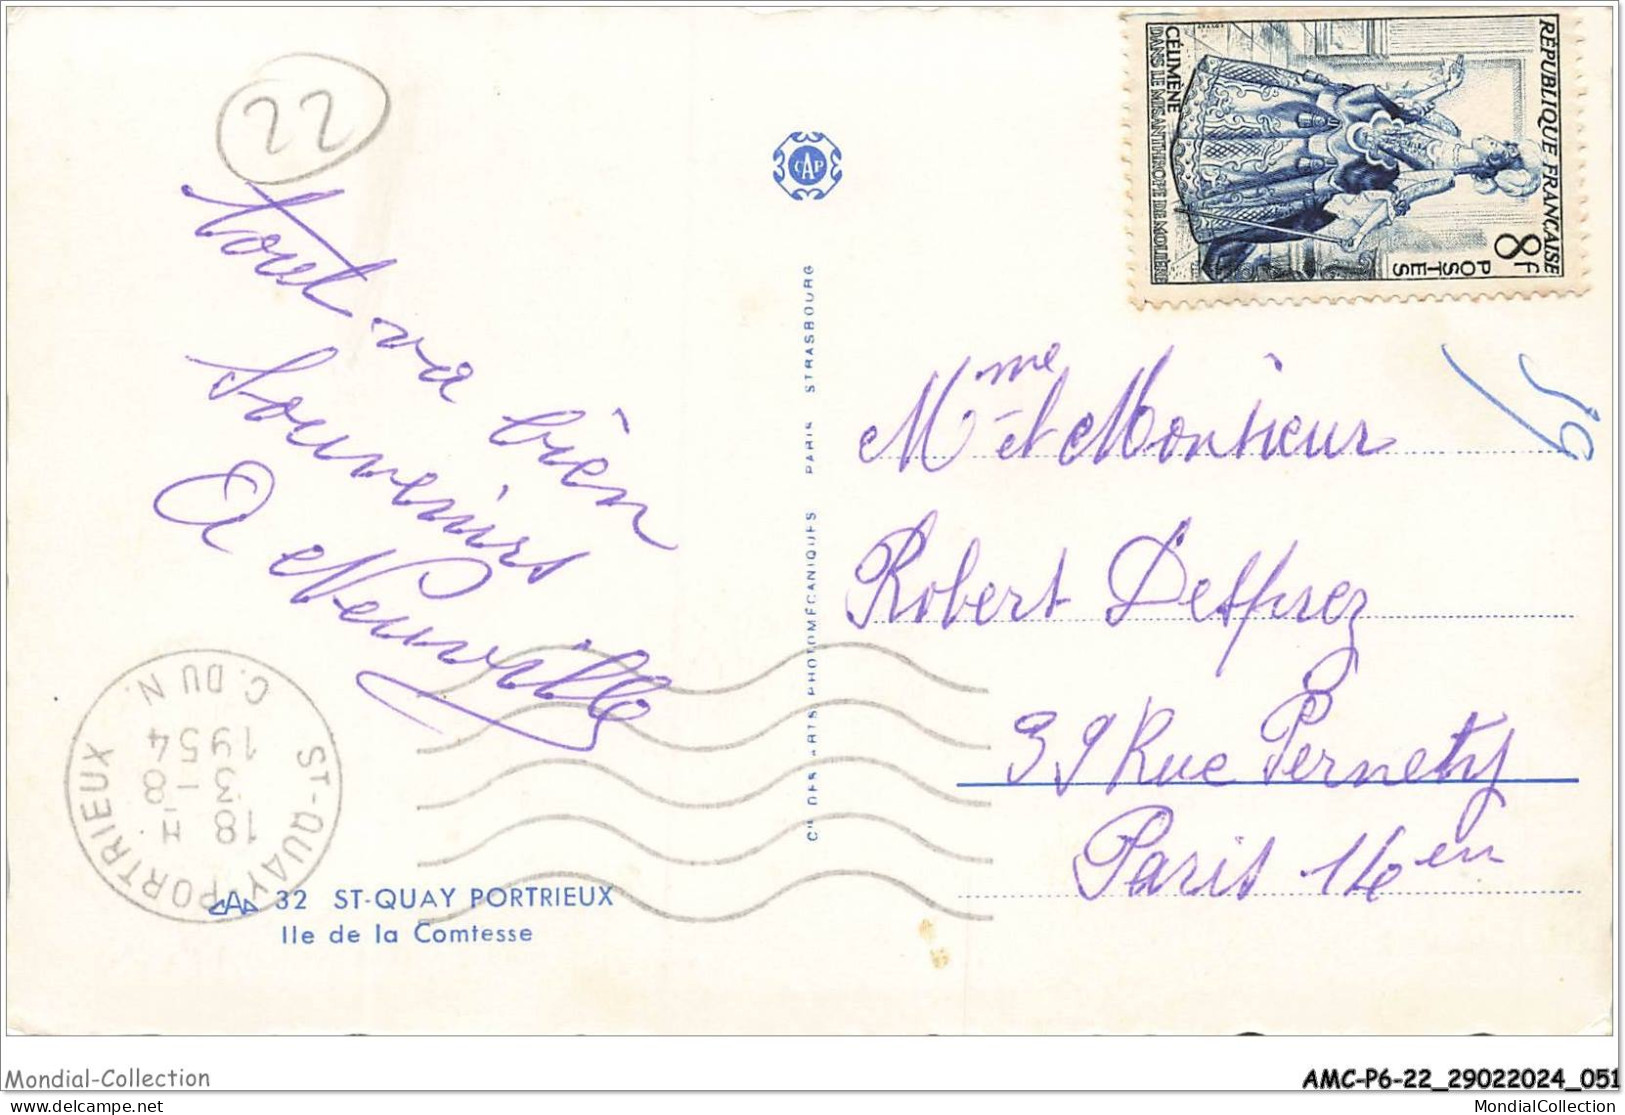 22
Tout va bien
Souvenirs
A Neuville
CAP
RÉPUBLIQUE FRANÇAISE
8F
POSTES
CÉLIMÈNE
DANS LE MISANTHROPE DE MOLIÈRE
59
Mme et Monsieur
Robert Desprez
39 Rue Pernety
Paris 14en
Cie DES ARTS PHOTOMÉCANIQUES PARIS STRASBOURG
ST-QUAY-PORTRIEUX
18 H
3-8
1954
C. DU N.
CAP 32 ST-QUAY PORTRIEUX
Ile de la Comtesse
Mondial-Collection
AMC-P6-22_29022024_051
delcampe.net
MondialCollection